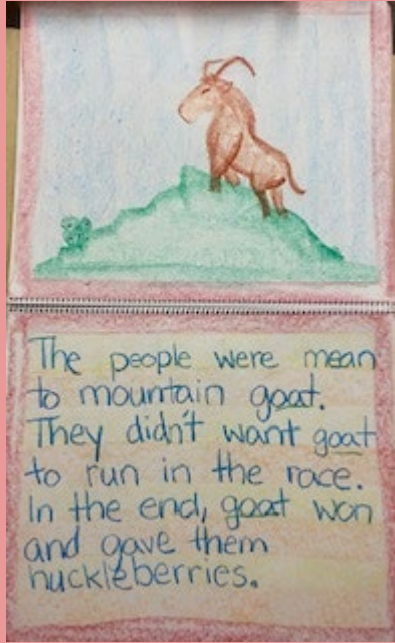 The people were mean
to mountain goat.
They didn't want goat
to run in the race.
In the end, goat won
and gave them
huckleberries.